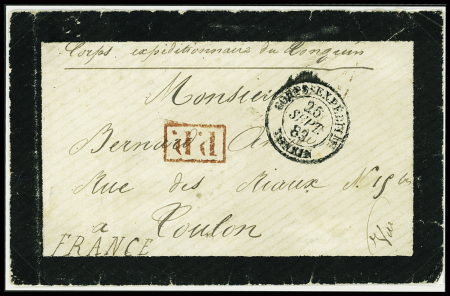 Corps expéditionnaire du Tonquin
Monsieur
Bernard
Rue des Riaux N. 15 bis
a Toulon
FRANCE
Var
P.P.
CORPS EXPEDIT
25
SEPT.
83
TONKIN